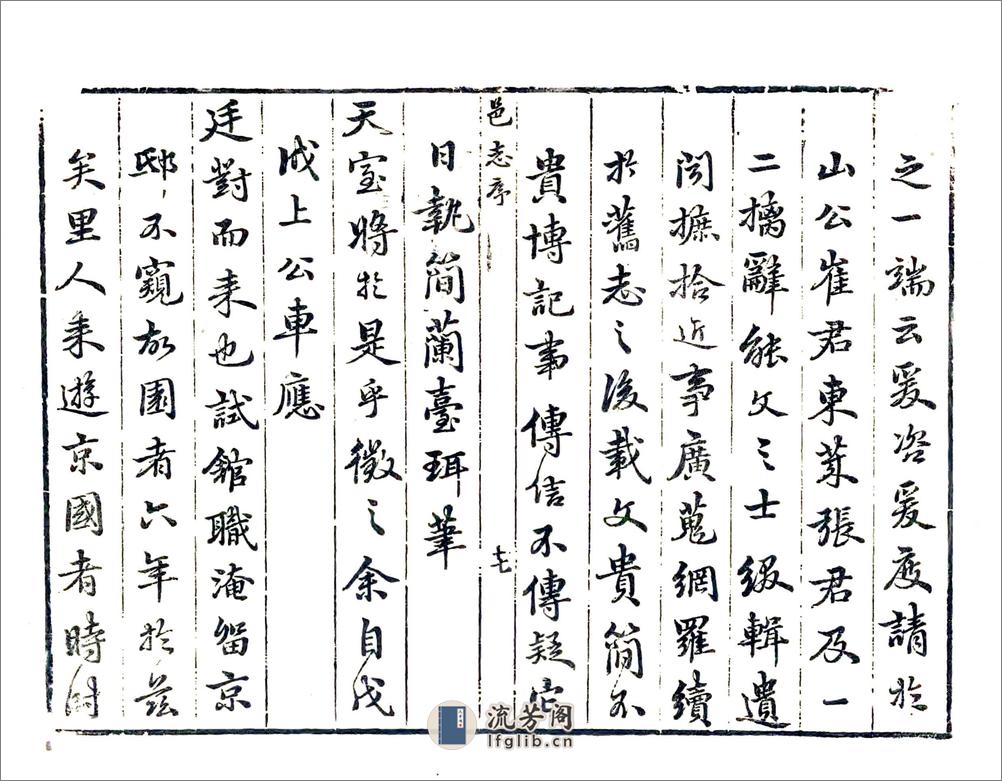 之一端云爰咨爰度請於
山公崔君東萊張君及一
二摛辭能文之士綴輯遺
聞摭拾近事廣蒐網羅續
於舊志之後載文貴簡不
貴博記事傳信不傳疑它
邑志序
七
日執簡蘭臺珥筆
天室將於是乎徵之余自戊
戌上公車應
廷對而來也試館職淹留京
邸邸不窺故園者六年於茲
矣里人來遊京國者時時
流芳阁
lfglib.cn